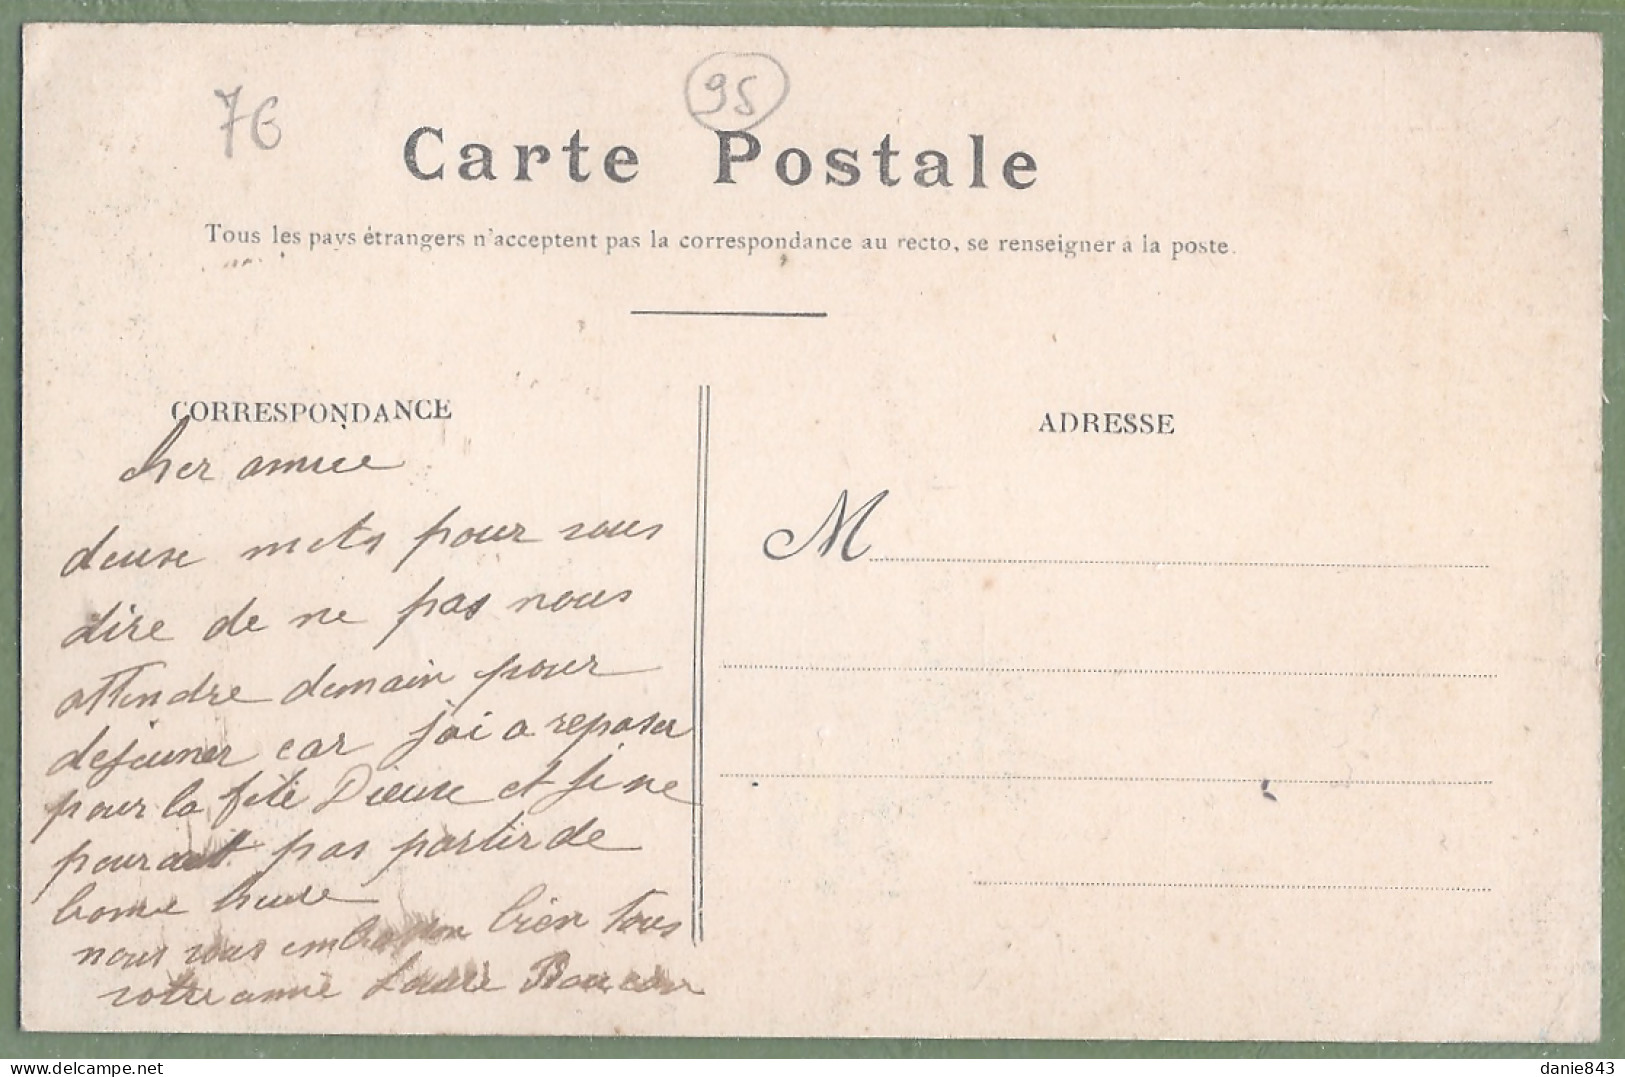 76
95
Carte Postale
Tous les pays étrangers n'acceptent pas la correspondance au recto, se renseigner à la poste.
CORRESPONDANCE
ADRESSE
cher amie
M
deuse mots pour vous
dire de ne pas nous
attendre demain pour
dejeuner car jai a reposer
pour la fête Dieuse et je ne
pourait pas partir de
bonne heure
nous vous embrasson bien tous
votre amie Laure
danie843